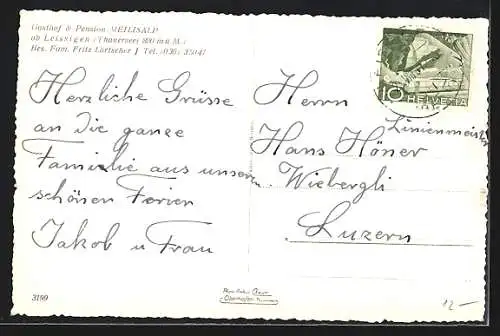 Gasthof & Pension MEIELISALP
ob Leissigen (Thunersee) 800 m ü M.)
Bes. Fam. Fritz Lörtscher / Tel. (036)
Herzliche Grüsse
an Die ganze
Familie aus unsern
schönen Ferien
Jakob u Frau
3199
10
HELVETIA
Herrn
Linienmeister
Hans Höner
Wiebergli
Luzern
12 –